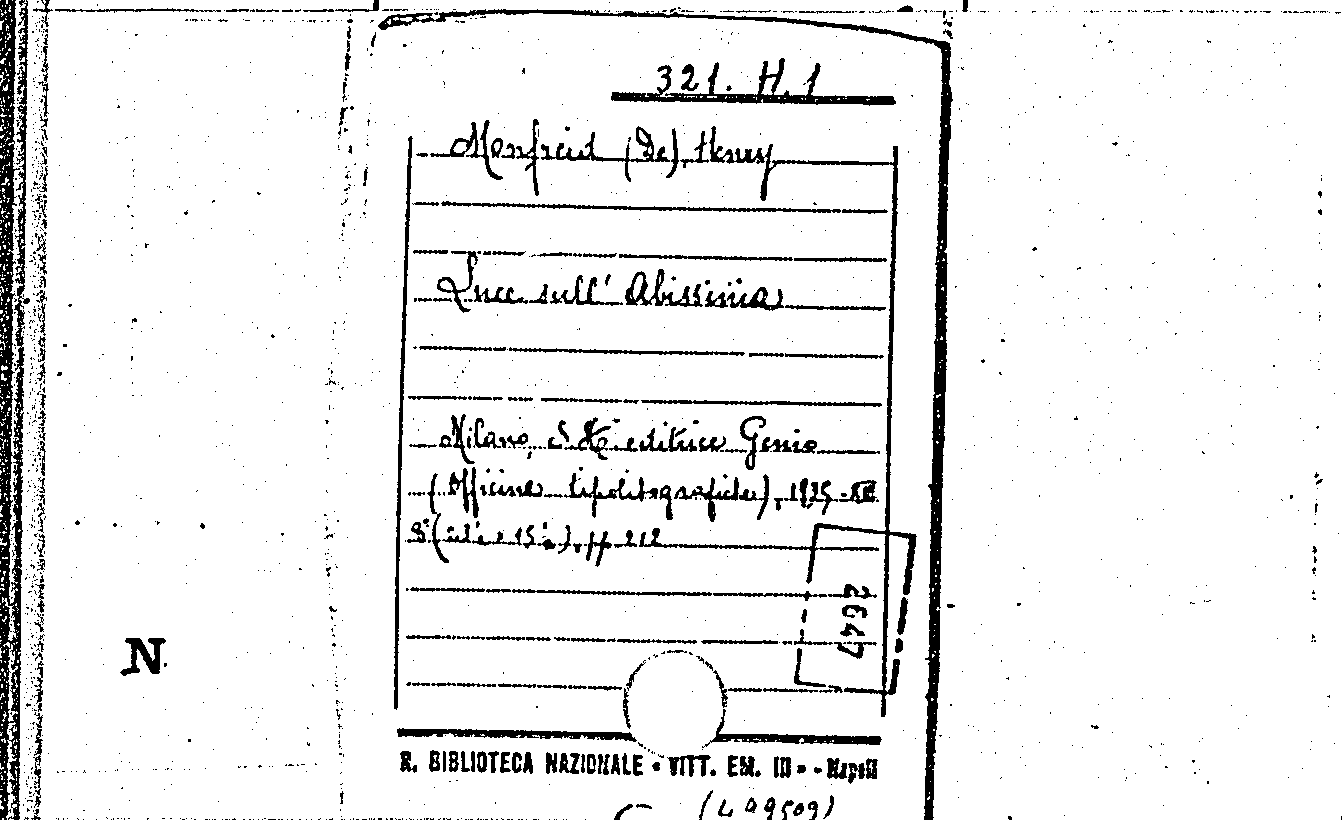 321. H. 1
Monfreid (De), Henry
Luce sull' Abissinia
Milano, editrice Genio
(Officine tipolitografiche), 1935-XIII
8° pp. 212
2647
N
R. BIBLIOTECA NAZIONALE • VITT. EM. III • - Napoli
(409509)